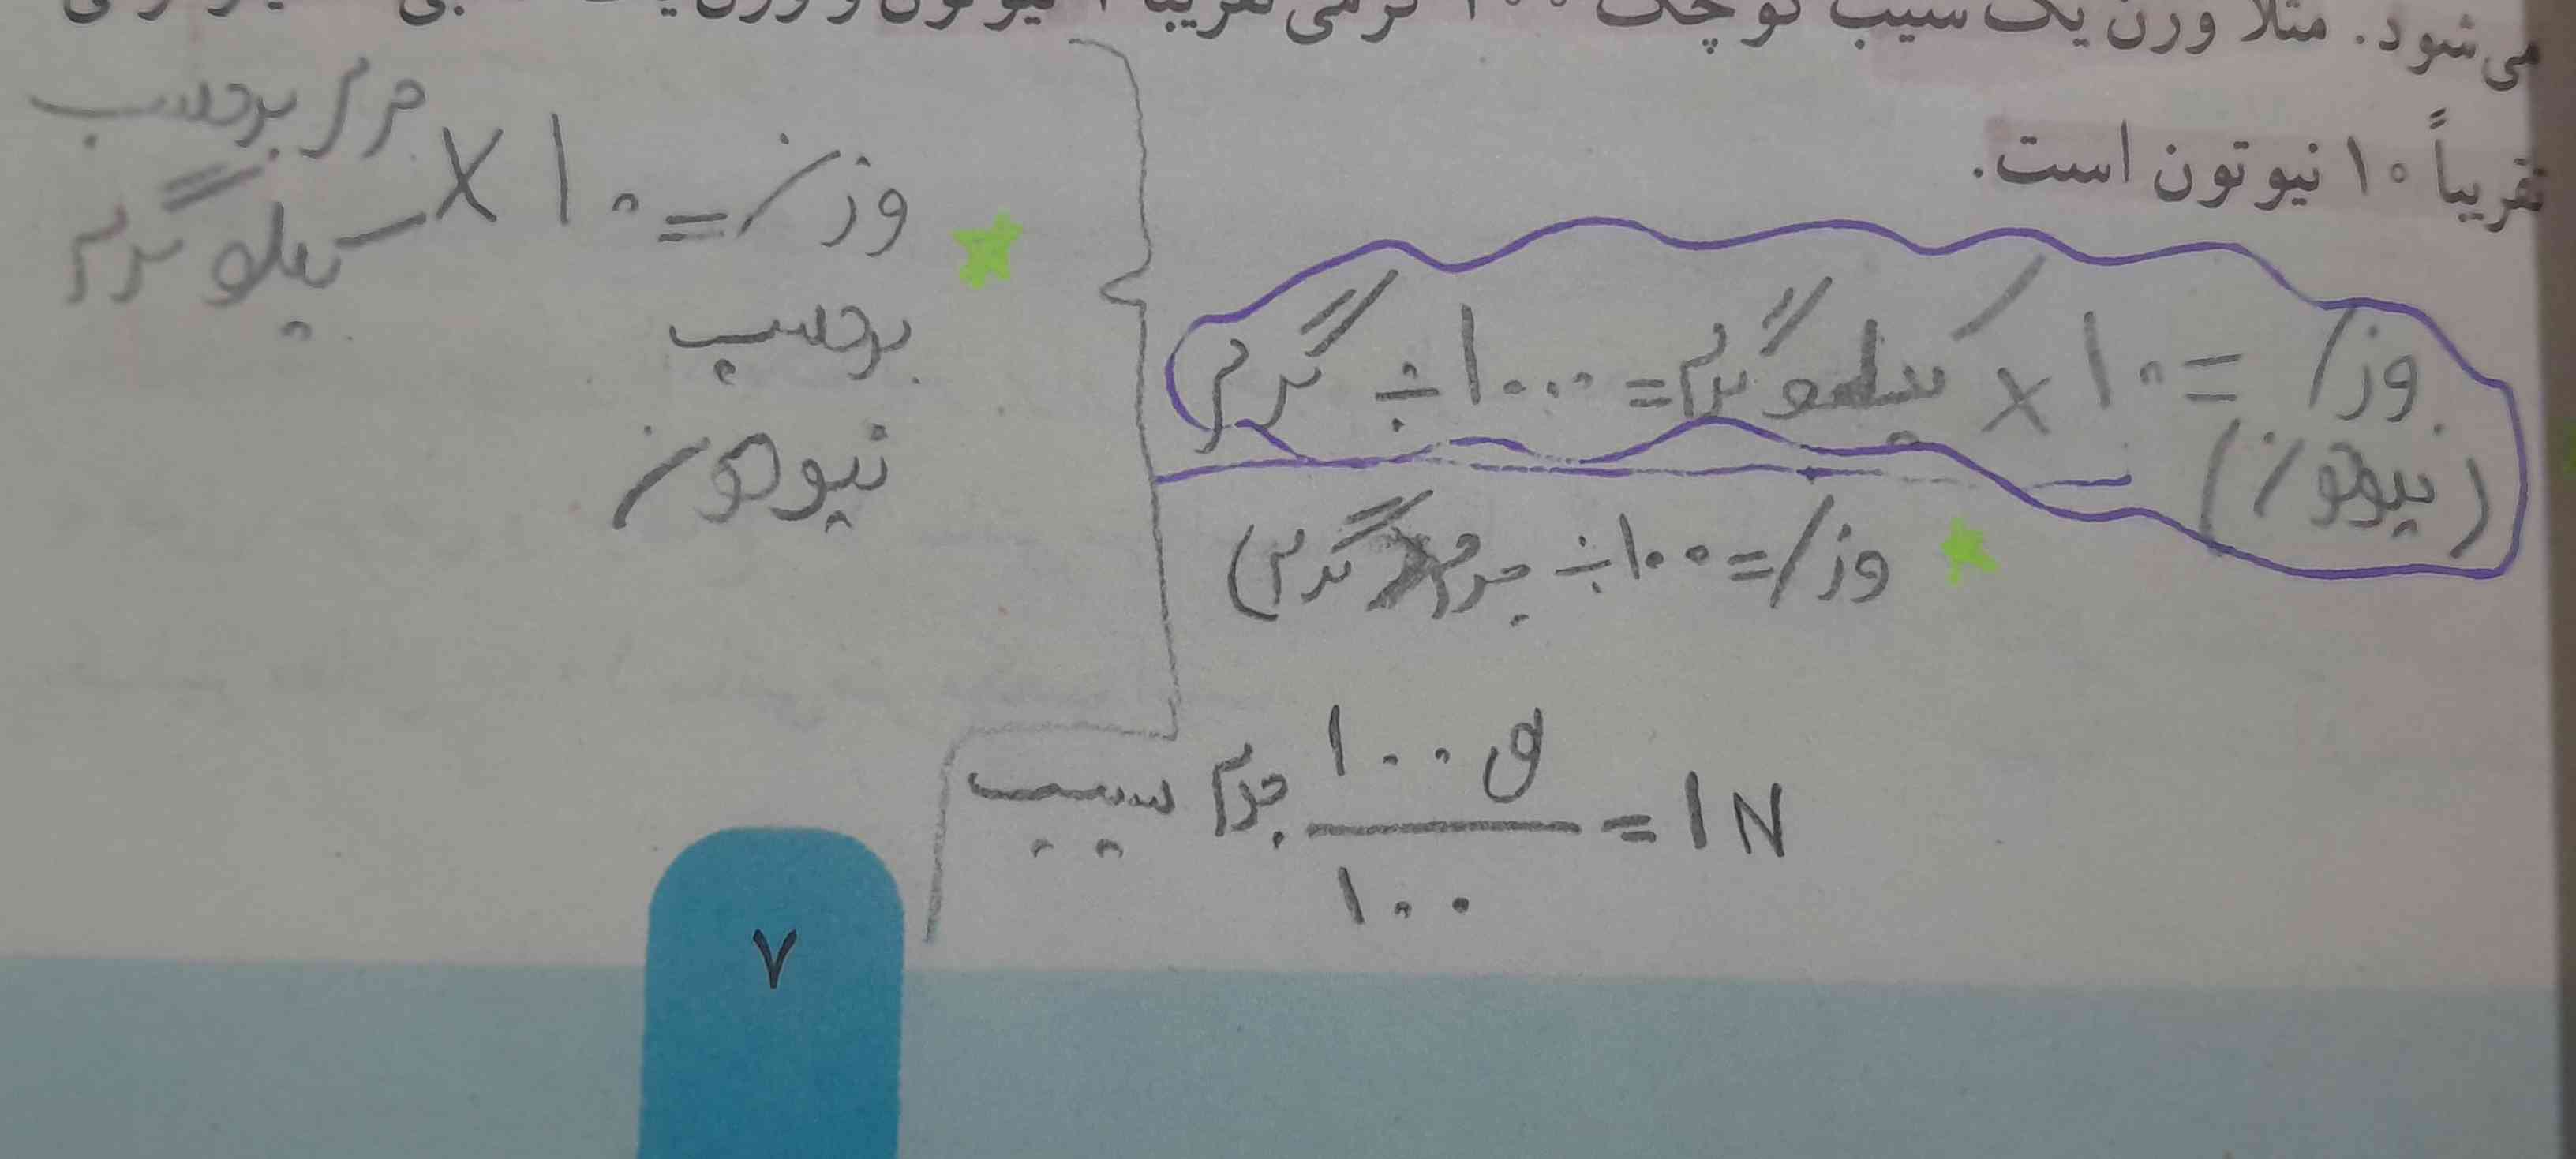 می‌شود. مثلاً وزن یک سیب کوچک ۱۰۰ گرمی تقریباً ۱ نیوتون و وزن یک
تقریباً ۱۰ نیوتون است.
وزن = ۱۰ × کیلوگرم = ۱۰۰۰ ÷ گرم
(نیوتون)
وزن = ۱۰۰ ÷ جرم (گرم)
جرم سیب ۱۰۰ g / ۱۰۰ = ۱ N
وزن = ۱۰ × جرم برحسب
کیلوگرم
برحسب
نیوتون
۷